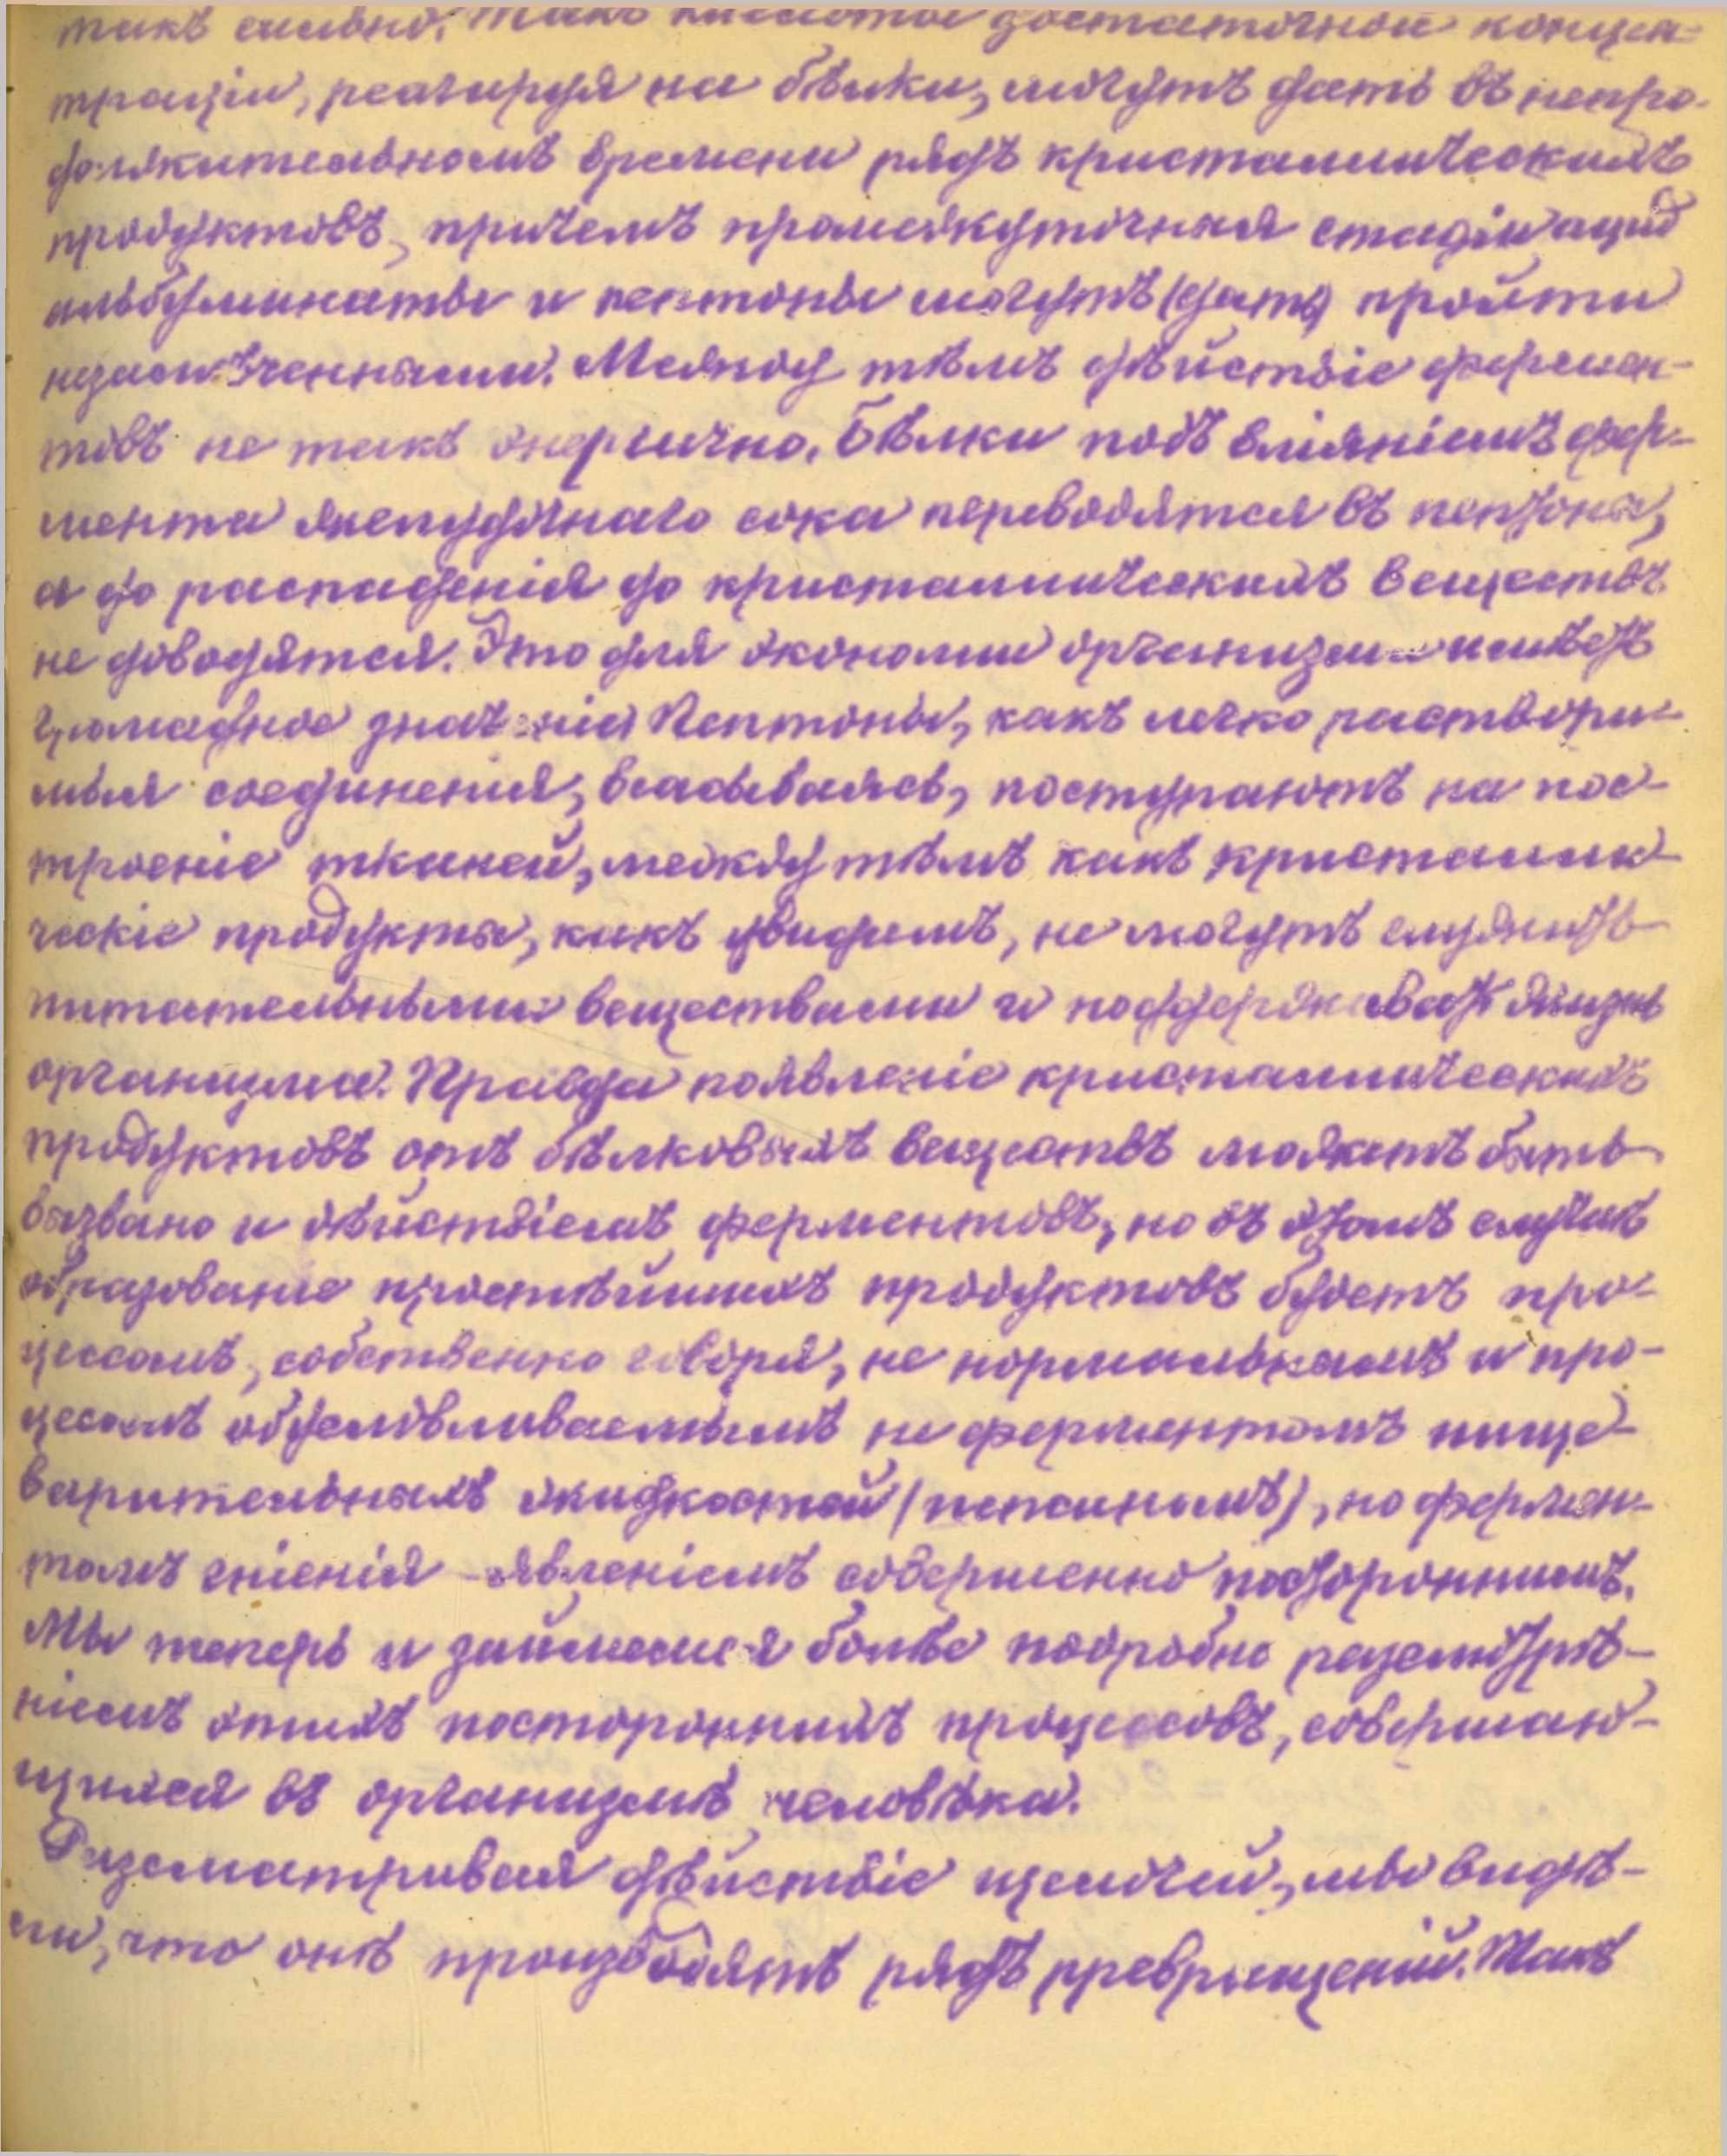 такъ сильно. Такъ кислоты достаточной концен-
траціи, реагируя на бѣлки, могутъ дать въ непро-
должительномъ времени рядъ кристаллическихъ
продуктовъ, причемъ промежуточныя стадіи ацид
альбуминаты и пептоны могутъ (дать) пройти
незамѣченными. Между тѣмъ дѣйствіе фермен-
товъ не такъ энергично. Бѣлки подъ вліяніемъ фер-
мента желудочнаго сока переводятся въ пептоны,
а до распаденія до кристаллическихъ веществъ
не доводятся. Это для экономіи организма имѣетъ
громадное значеніе Пептоны, какъ легко раствори-
мыя соединенія, всасываясь, поступаютъ на пос-
троеніе тканей, между тѣмъ какъ кристалли-
ческіе продукты, какъ увидимъ, не могутъ служить
питательными веществами и поддерживать жизнь
организма. Правда появленіе кристаллическихъ
продуктовъ отъ бѣлковыхъ веществъ можетъ быть
вызвано и дѣйствіемъ ферментовъ, но въ этомъ случаѣ
образованіе простѣйшихъ продуктовъ будетъ про-
цессомъ, собственно говоря, не нормальнымъ и про-
цесомъ обусловливаемымъ не ферментомъ пище-
варительныхъ жидкостей (пепсиномъ), но фермен-
томъ гніенія - явленіемъ совершенно постороннимъ.
Мы теперь и займемся болѣе подробно разсмотрѣ-
ніемъ этихъ постороннихъ процессовъ, совершаю-
щихся въ организмѣ человѣка.
Разсматривая дѣйствіе щелочей, мы видѣ-
ли, что онѣ производятъ рядъ превращеній. Такъ